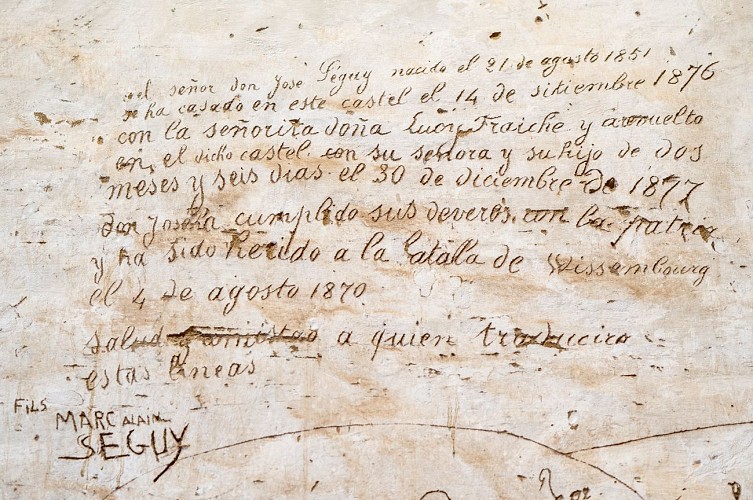 el señor don José Séguy nacido el 21 de agosto 1851
se ha casado en este castel el 14 de sitiembre 1876
con la señorita doña Fraiche y a revuelto
en el dicho castel con su señora y su hijo de dos
meses y seis dias el 30 de diciembre de 1877
don José ha cumplido sus deveros con la patria
y ha sido herido a la batalla de Wissembourg
el 4 de agosto 1870
salud y amistad a quien traducira
estas lineas
FILS MARC ALAIN
SEGUY